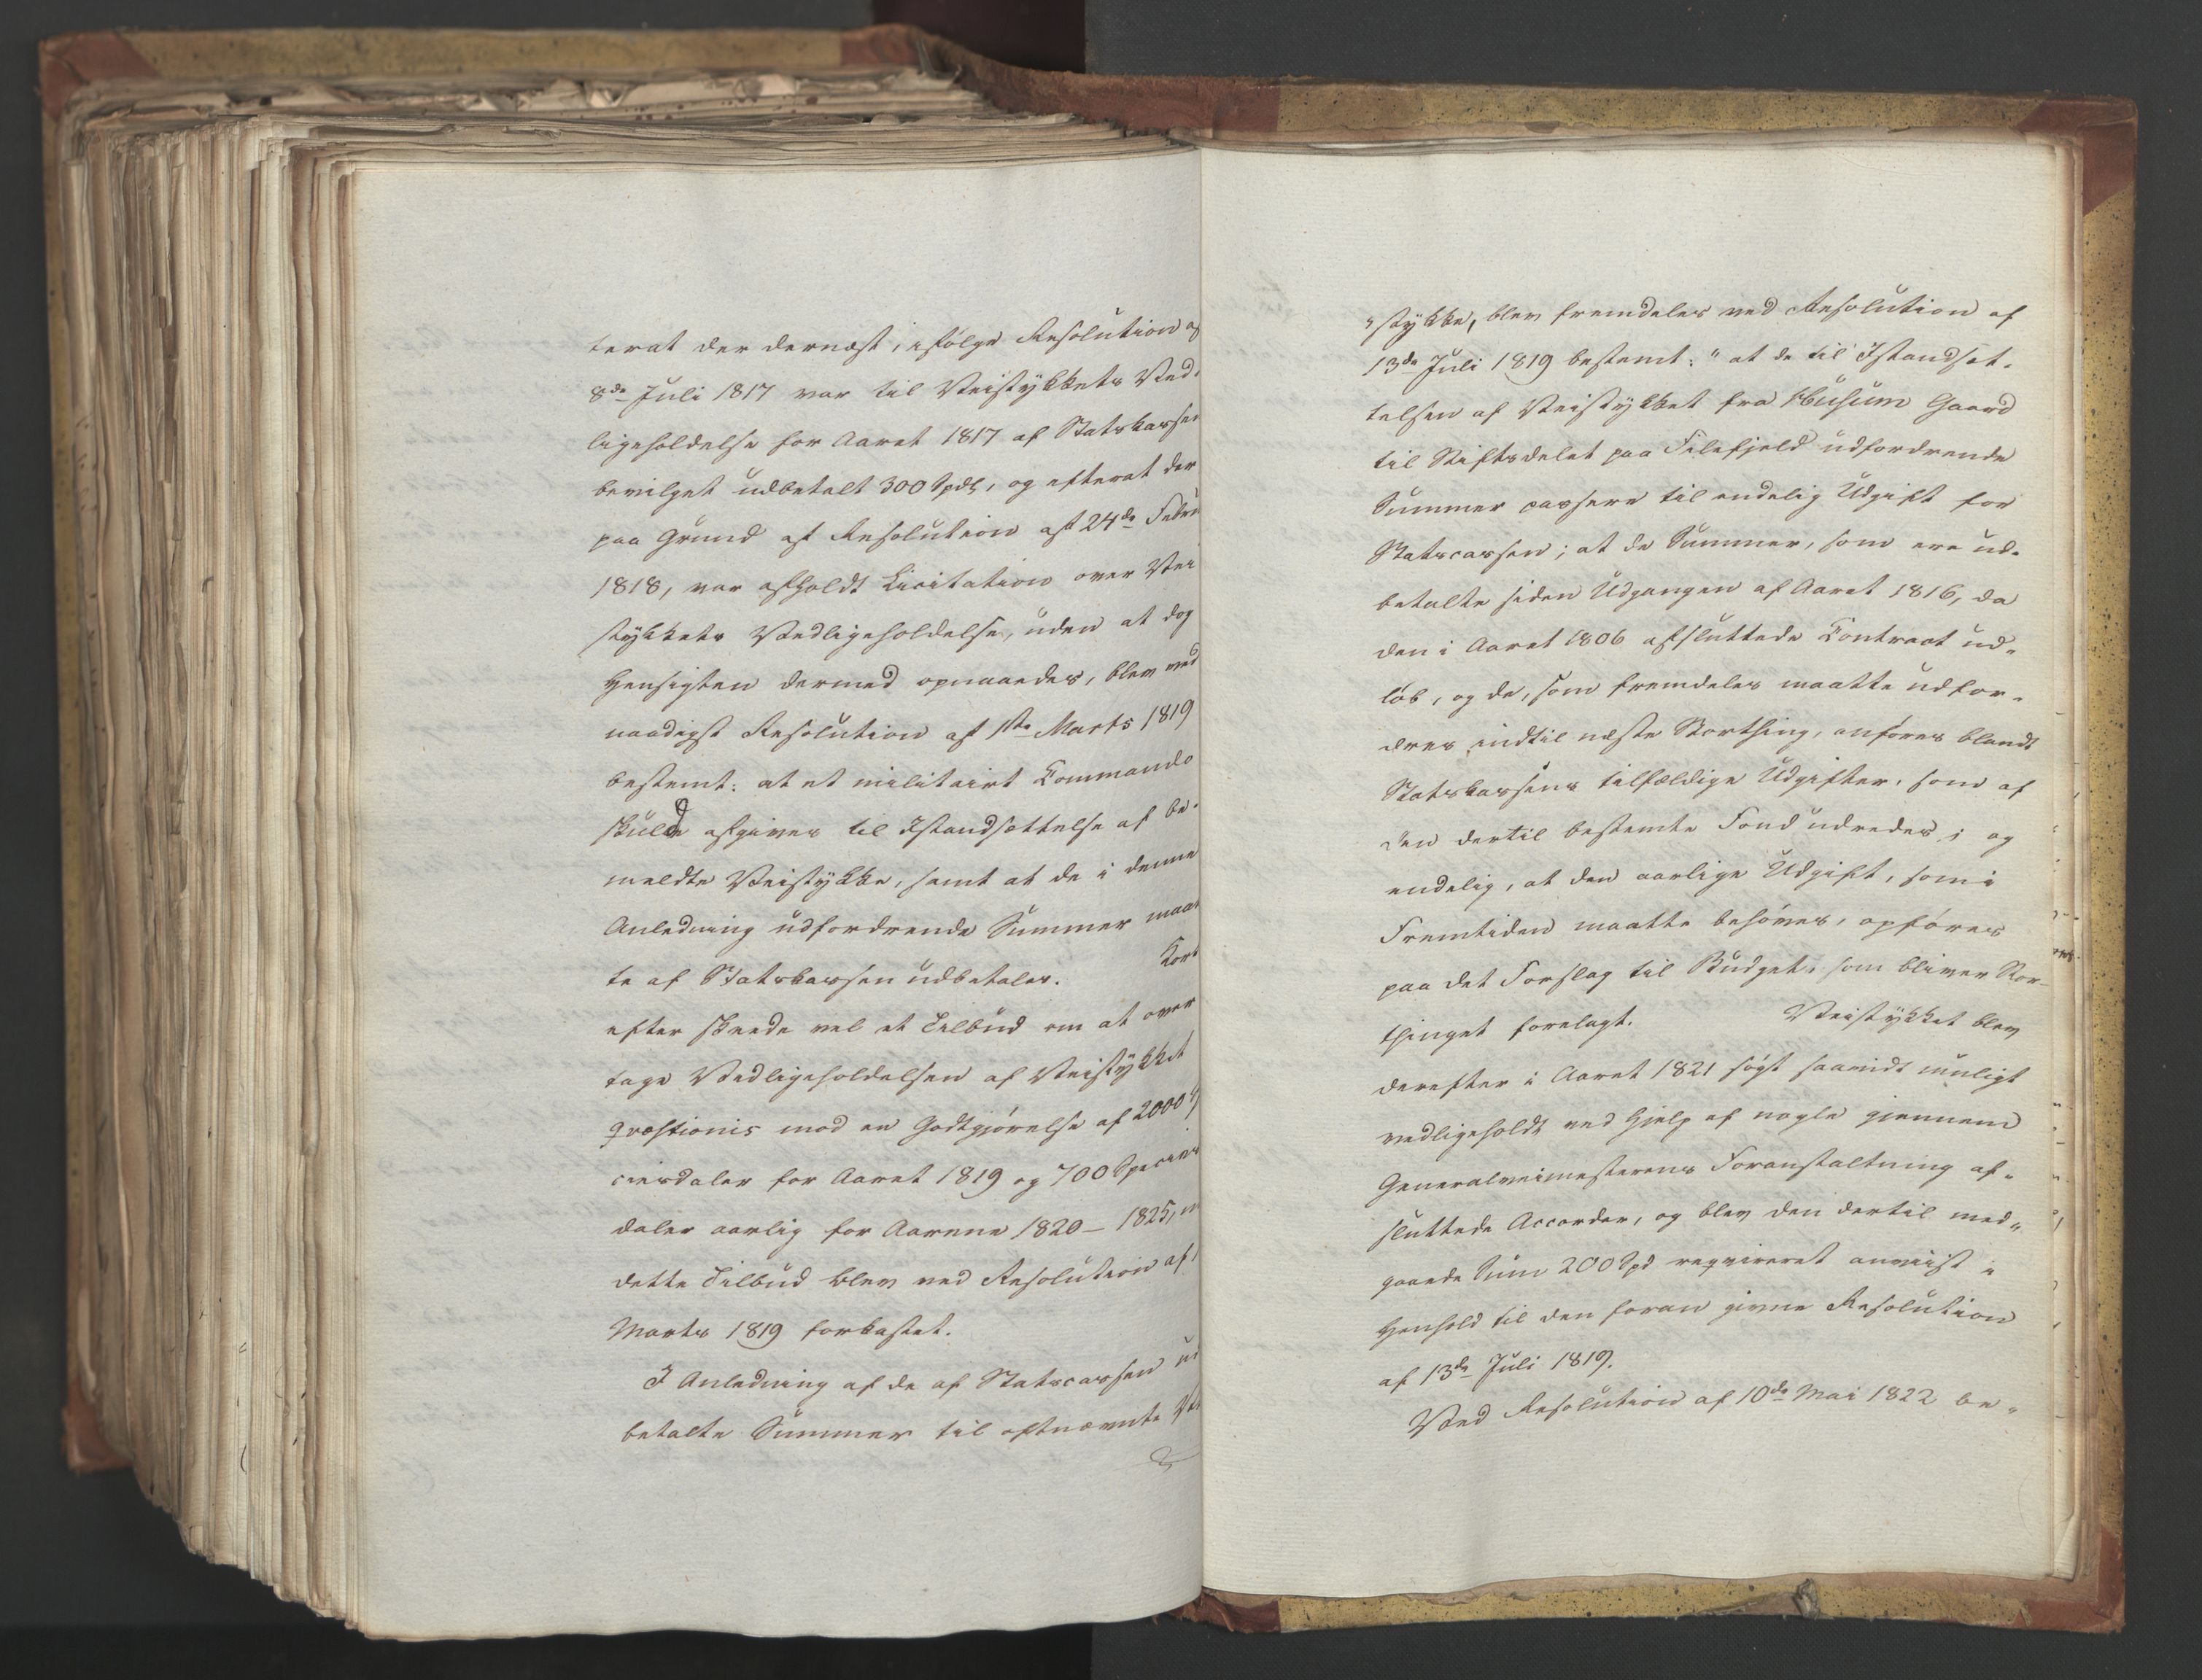 terat der dernæst, ifølge Resolution af
8de Juli 1817 var til Veistykkets Ved-
ligeholdelse for Aaret 1817 af Statskassen
bevilget udbetalt 300 Spdlr, og efterat der
paa Grund af Resolution af 24de Febru
1818, var afholdt Licitation over Vei
stykkets Vedligeholdelse, uden at dog
Hensigten dermed opnaaedes, blev ved
naadigst Resolution af 1ste Marts 1819
bestemt: at et militairt Commando
skulde afgives til Istandsættelse af be-
meldte Veistykke, samt at de i denne
Anledning udfordrende Summer maat
te af Statskassen udbetales. Kort
efter skeede vel et Tilbud om at over
tage Vedligeholdelsen af Veistykket
qvæstionis mod en Godtgjørelse af 2000
ciesdaler for Aaret 1819 og 700 Species
daler aarlig for Aarene 1820 - 1825, m
dette Tilbud blev ved Resolution af
Marts 1819 forkastet.
I Anledning af de af Statscassen ud
betalte Summer til oftnævnte Vei
"stykke, blev fremdeles ved Resolution af
13de Juli 1819 bestemt: "at de til Istandsæt-
telsen af Veistykket fra Husum Gaard
til Stiftsdelet paa Filefjeld udfordrende
Summer passere til endelig Udgift for
Statscassen; at de Summer, som ere ud-
betalte siden Udgangen af Aaret 1816, da
den i Aaret 1806 afsluttede Contract ud-
løb, og de, som fremdeles maatte udfor-
dres indtil næste Storthing, anføres blandt
Statskassens tilfældige Udgifter, som af
den dertil bestemte Fond udredes; og
endelig, at den aarlige Udgift, som i
Fremtiden maatte behøves, opføres
paa det Forslag til Budget, som bliver Stor-
thinget forelagt. Veistykket blev
derefter i Aaret 1821 søgt saavidt muligt
vedligeholdt ved Hjelp af nogle gjennem
Generalveimesterens Foranstaltning af-
sluttede Accorder, og blev den dertil med-
gaaede Sum 200 Spd reqvireret anviist i
Henhold til den foran givne Resolution
af 13de Juli 1819.
Ved Resolution af 10de Mai 1822 be-